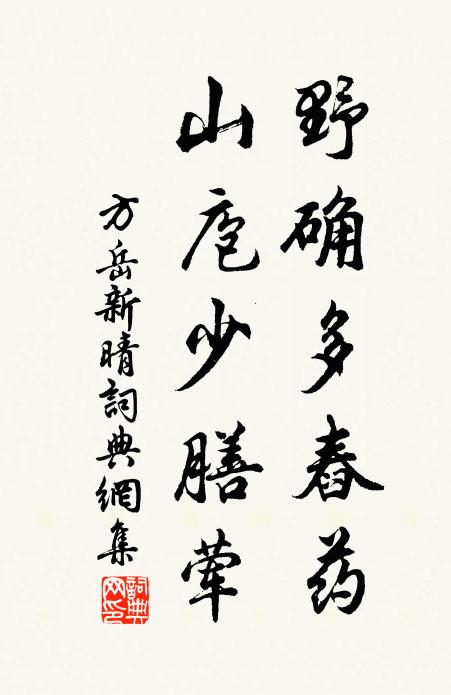 野确多舂药
山庖少膳荤
方岳新晴詞典網集
詞典网印